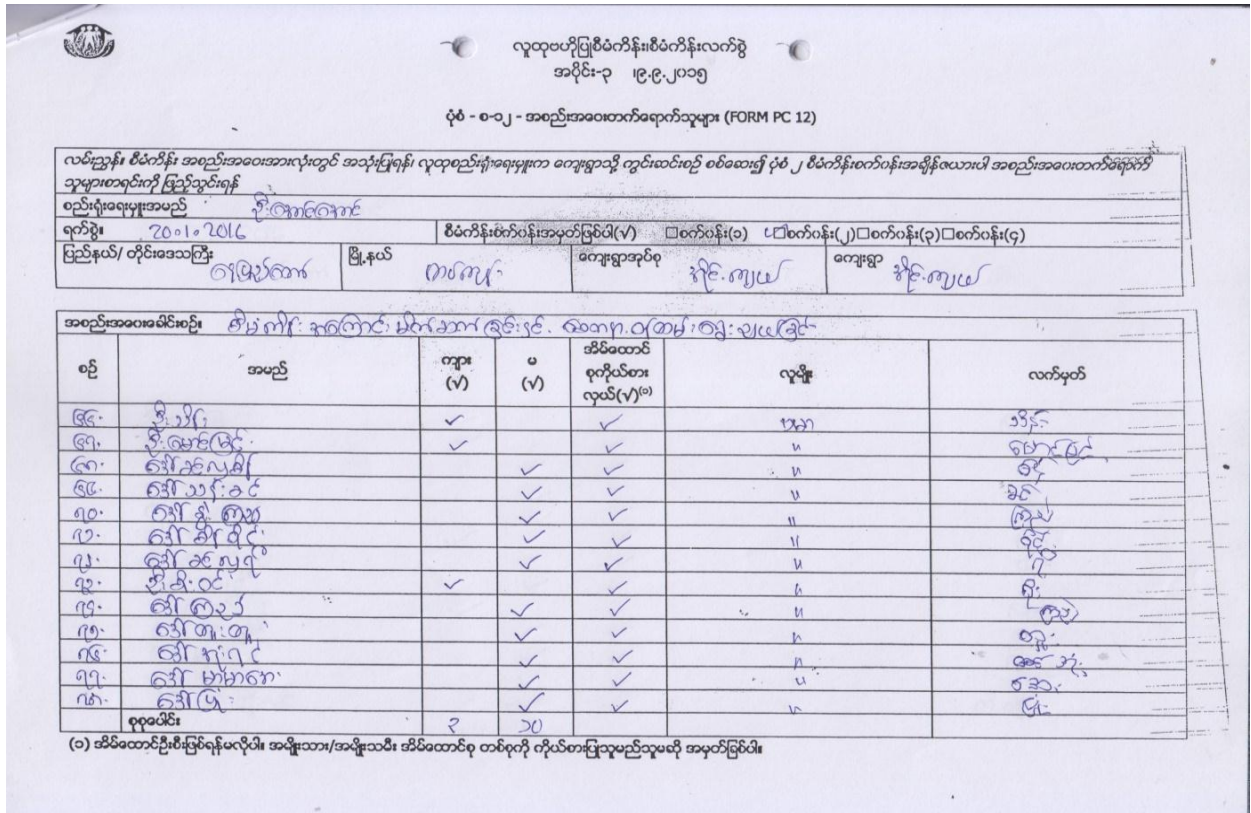 လူထုဗဟိုပြုစီမံကိန်းစီမံကိန်းလက်စွဲ
အပိုင်း-၃ ၊၉.၉.၂၀၁၅
ပုံစံ - စ-၁၂ - အစည်းအဝေးတက်ရောက်သူများ (FORM PC 12)
လမ်းညွှန်။ စီမံကိန်း အစည်းအဝေးအားလုံးတွင် အသုံးပြုရန်၊ လူထုစည်းရုံးရေးမှူးက ကျေးရွာသို့ ကွင်းဆင်းစဉ် စစ်ဆေး၍ ပုံစံ ၂ စီမံကိန်းစက်ဝန်းအချိန်ဇယားပါ အစည်းအဝေးတက်ရောက်
သူများစာရင်းကို ဖြည့်သွင်းရန်
စည်းရုံးရေးမှူးအမည် ဦးအောင်အောင်
ရက်စွဲ။ 20.1.2016 စီမံကိန်းစက်ဝန်းအမှတ်ခြစ်ပါ(√) □စက်ဝန်း(၁) □စက်ဝန်း(၂)□စက်ဝန်း(၃)□စက်ဝန်း(၄)
ပြည်နယ်/ တိုင်းဒေသကြီး နေပြည်တော် မြို့နယ် တပ်ကုန်း ကျေးရွာအုပ်စု အိုင်းကျယ် ကျေးရွာ အိုင်းကျယ်
အစည်းအဝေးခေါင်းစဉ်။ စီမံကိန်းအကြောင်းမိတ်ဆက်ခြင်းနှင့် စေတနာ့ဝန်ထမ်းရွေးချယ်ခြင်း
စဉ် အမည် ကျား (√) မ (√) အိမ်ထောင်စုကိုယ်စားလှယ်(√)⁽¹⁾ လူမျိုး လက်မှတ်
၆၆. ဦးသိန်း ✓ ✓ ဗမာ သိန်း
၆၇. ဦးမောင်မြင့် ✓ ✓ " မောင်မြင့်
၆၈. ✓ ✓ "
၆၉. ဒေါ်သန်းခင် ✓ ✓ " ခင်
၇၀. ✓ ✓ " ကြည်
၇၁. ✓ ✓ "
၇၂. ✓ ✓ "
၇၃. ✓ ✓ "
၇၄. ဒေါ်ကြည် ✓ ✓ " ကြည်
၇၅. ✓ ✓ "
၇၆. ✓ ✓ "
၇၇. ✓ ✓ "
၇၈. ✓ ✓ "
စုစုပေါင်း ၃ ၁၀
(၁) အိမ်ထောင်ဦးစီးဖြစ်ရန်မလိုပါ။ အမျိုးသား/အမျိုးသမီး အိမ်ထောင်စု တစ်စုကို ကိုယ်စားပြုသူမည်သူမဆို အမှတ်ခြစ်ပါ။